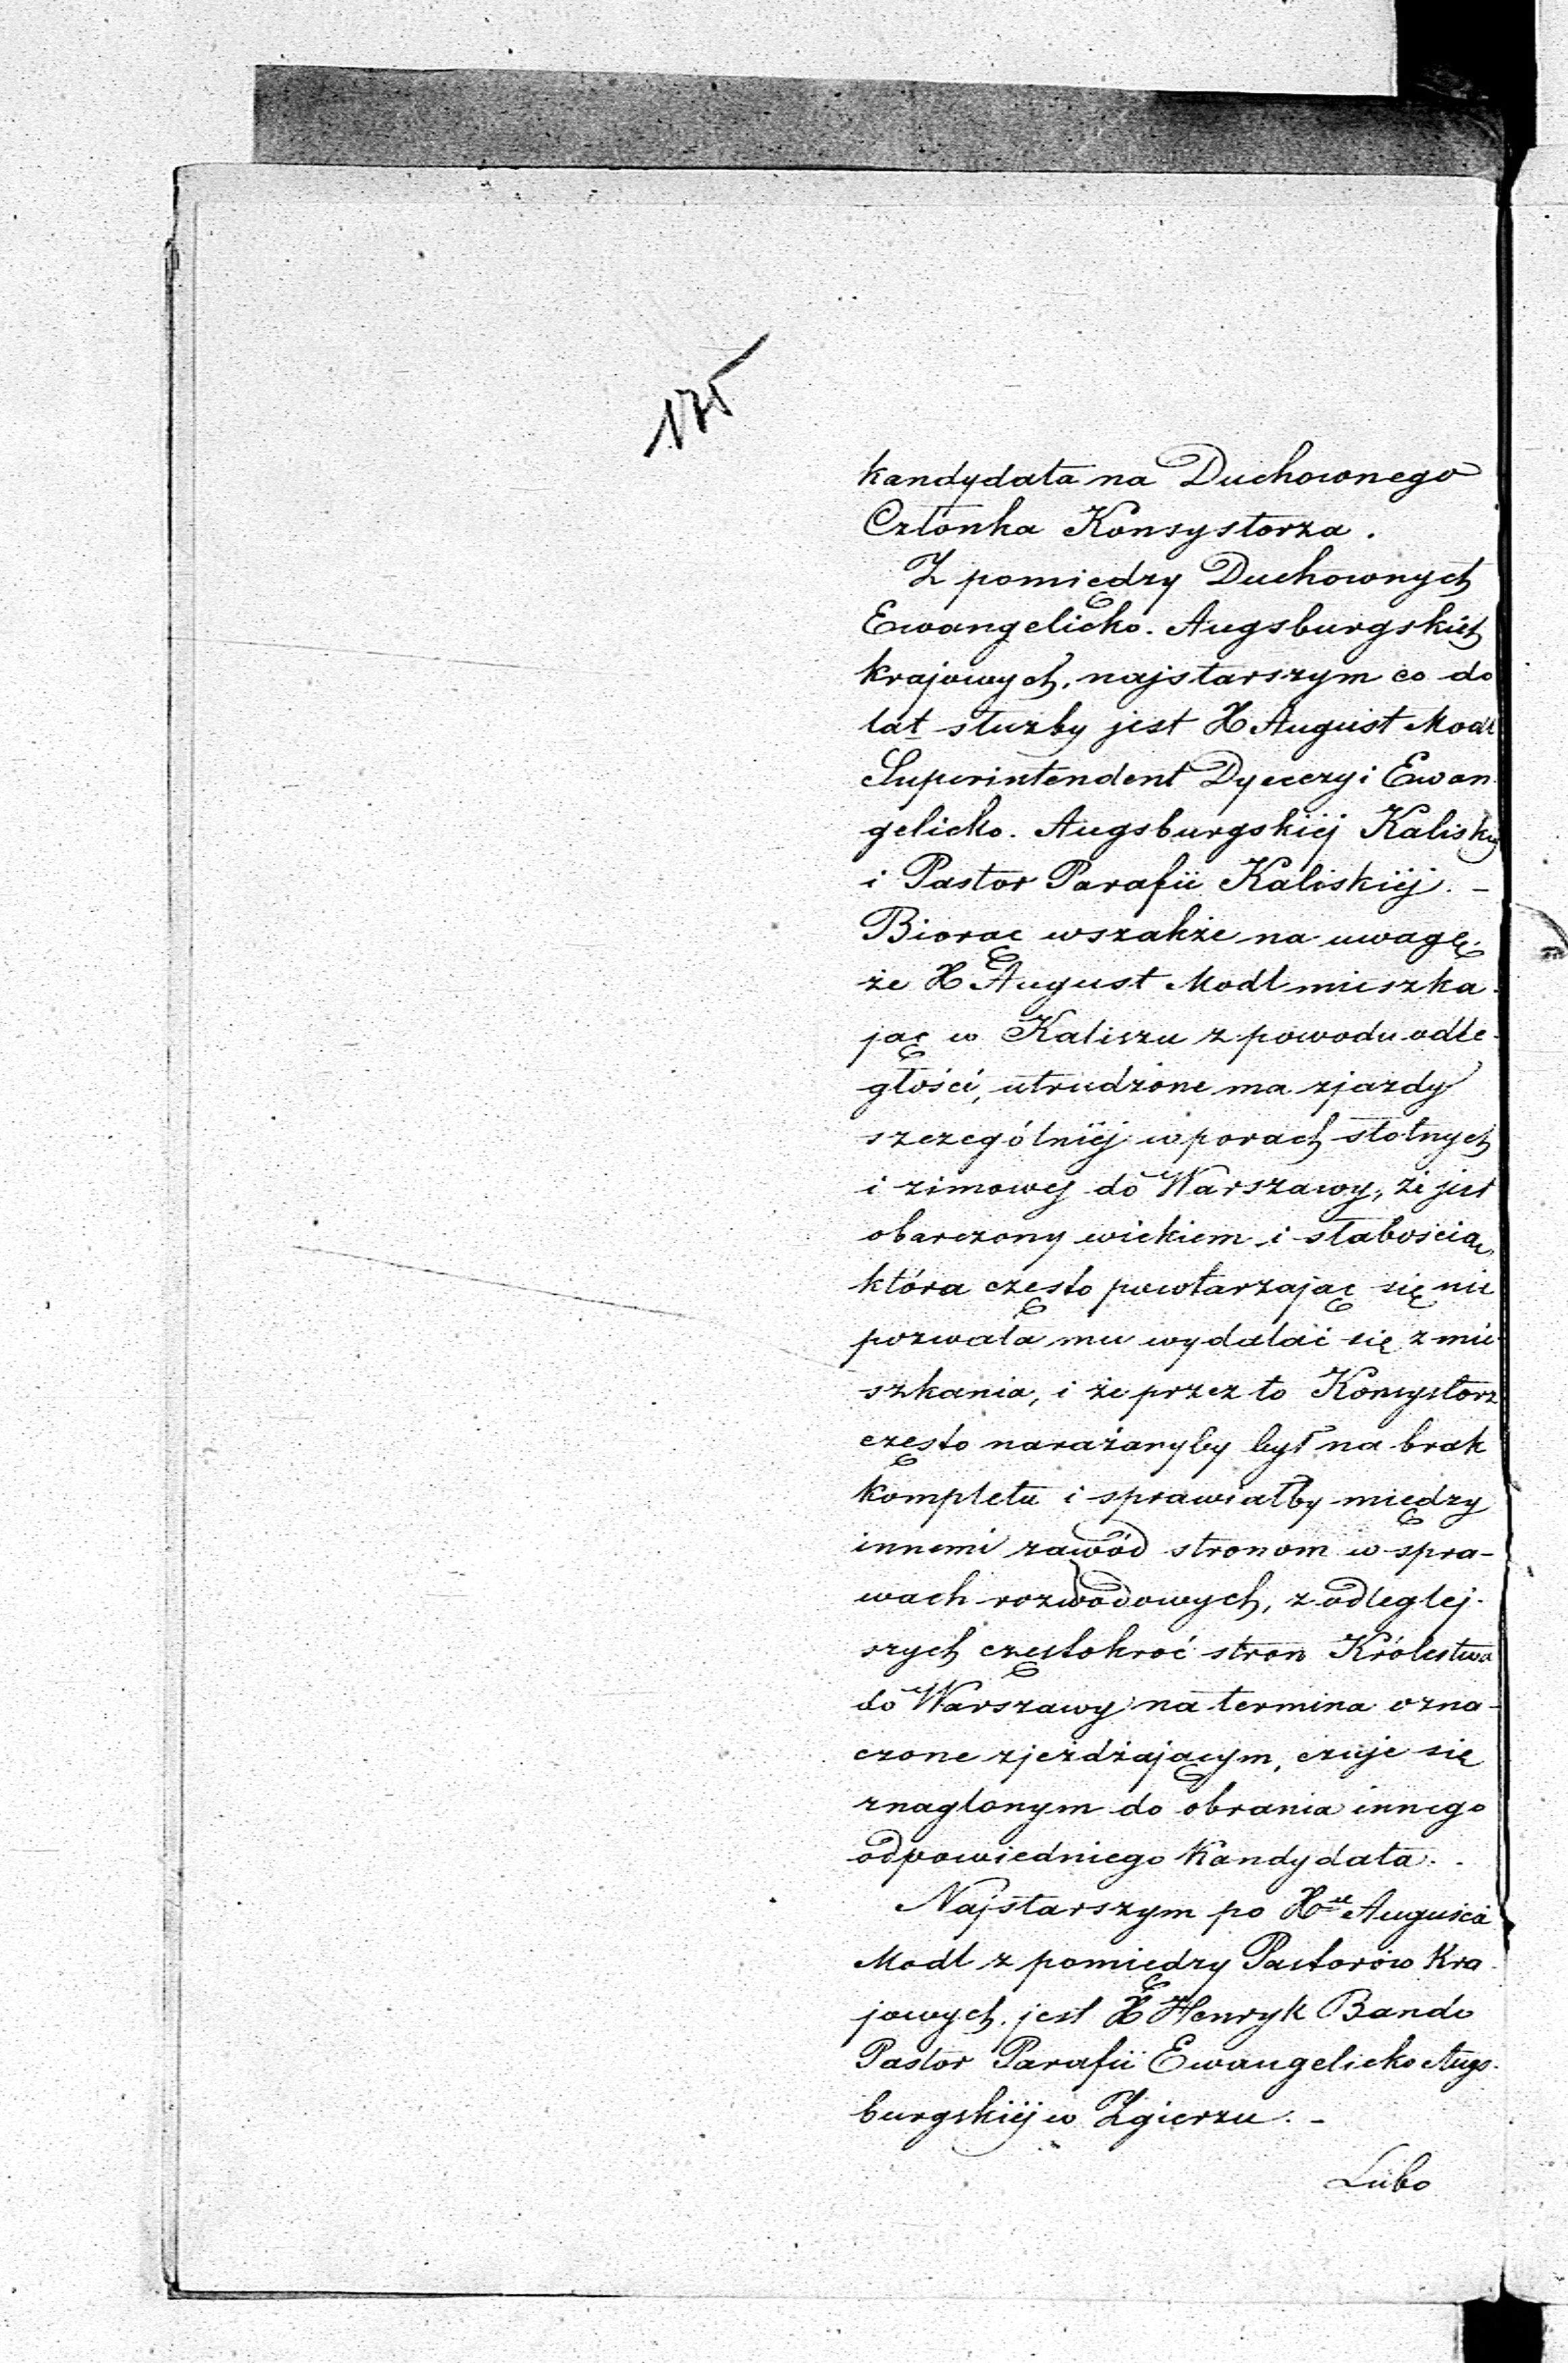 175
kandydata na Duchownego
Członka Konsystorza.
Z pomiędzy Duchownych
Ewangelicko-Augsburgskich
krajowych, najstarszym co do
lat służby jest X August Modl
Superintendent Dyecezyi Ewan-
gelicko-Augsburgskiéj Kaliskiéj
i Pastor Parafii Kaliskiéj. -
Biorąc wszakże na uwagę,
że X August Modl mieszka-
jąc w Kaliszu z powodu odle-
głości, utrudzone ma zjazdy
szczególniéj w porach słotnych
i zimowej do Warszawy, że jest
obarczony wiekiem i słabością,
która często powtarzając się nie
pozwala mu wydalać się z mie-
szkania, i że przez to Konsystorz
często narażanyby był na brak
kompletu i sprawiałby między
innemi zawód stronom w spra-
wach rozwodowych, z odleglej-
szych częstokroć stron Królestwa
do Warszawy na termina ozna-
czone zjeżdżającym, czuje się
znaglonym do obrania innego
odpowiedniego Kandydata.
Najstarszym po Auguście
Modl z pomiędzy Pastorów Kra-
jowych, jest X Henryk Bando
Pastor Parafii Ewangelicko Augs-
burgskiéj w Zgierzu. -
Lubo